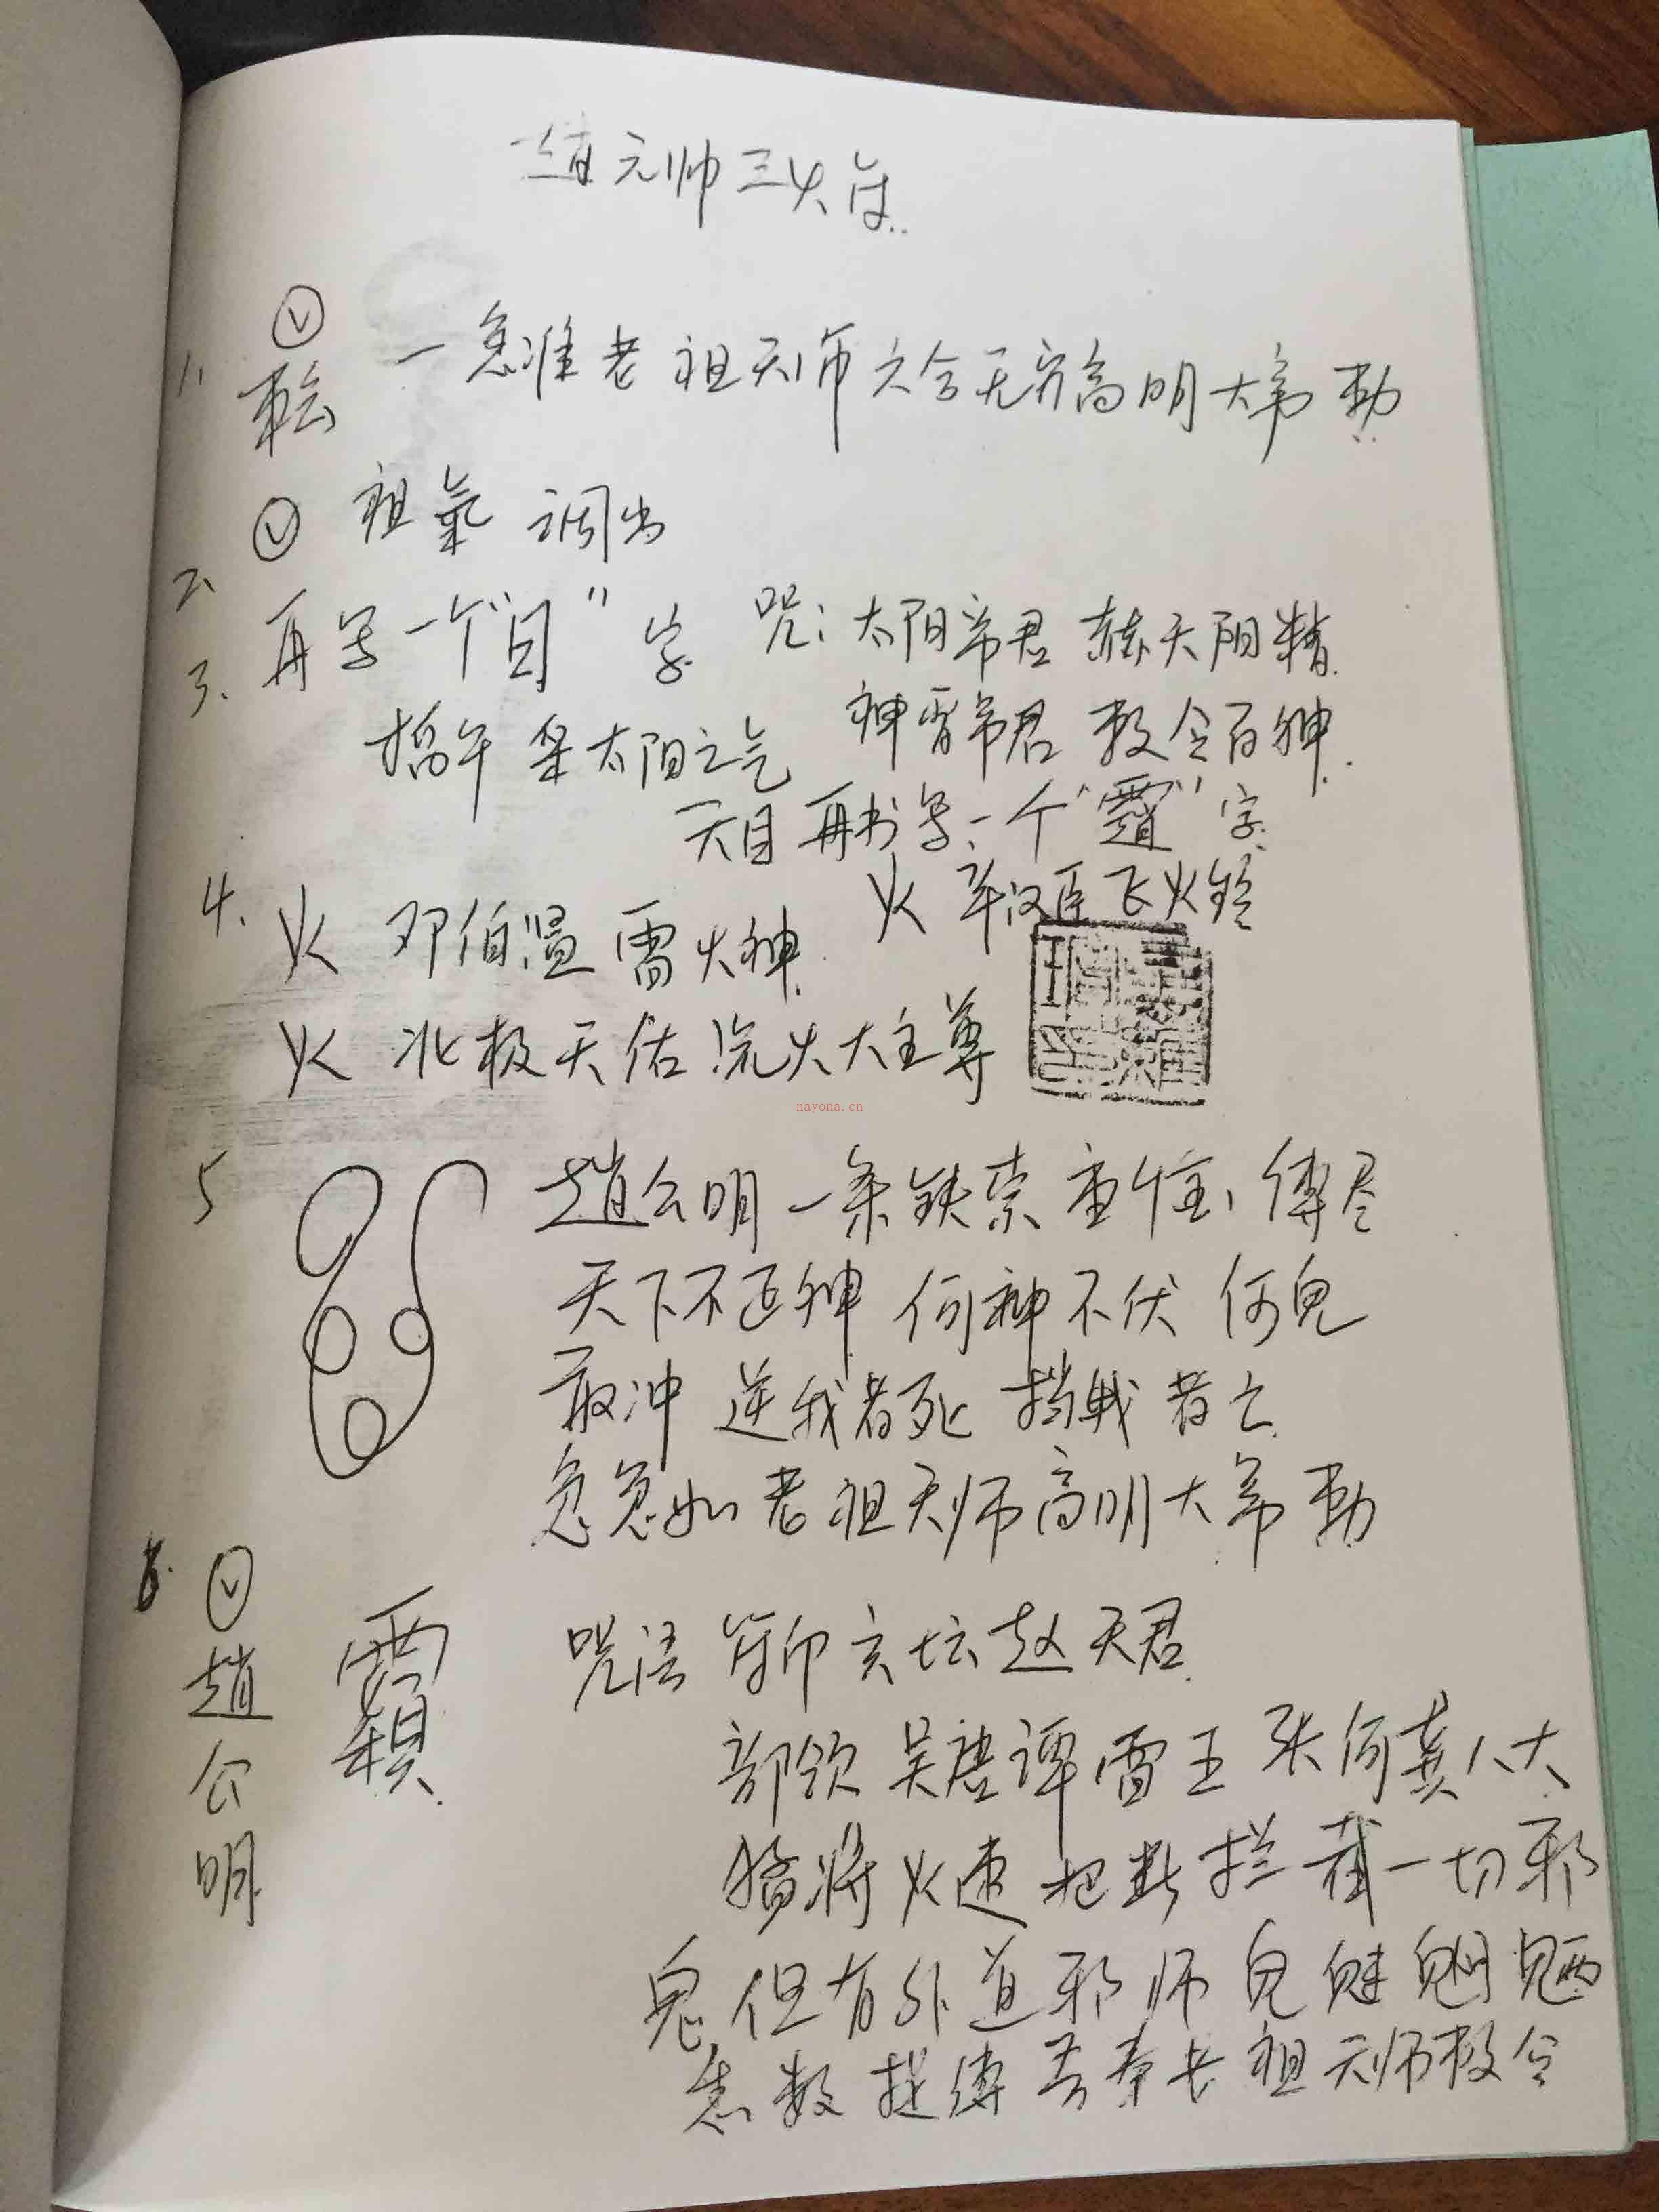 赵元帅三火符
1、 一急准老祖天师六合无穷高明大帝勅
2、 祖氣 调出
3、 再写一个“目”字 咒:太阳帝君 赫天阳精
掐午 采太阳之气 神霄帝君 敕令百神
天目 再书写一个“ ”字
4、 火 邓伯温 雷火神 火 辛汉臣 飞火铃
火 北极天佑 火大主尊
nayona.cn
5 趙公明一条铁索重 缚尽
天下不正神 何神不伏 何鬼
敢冲 逆我者死 挡我者亡
急急如老祖天师高明大帝勅
6. 趙公明 咒语 符印玄坛赵天君
部领 吴唐谭雷王张何龚八大
猛将火速把断拦截一切邪
鬼但有外道邪师鬼魅魍魉
悉数捉缚 吾奉老祖天师敕令